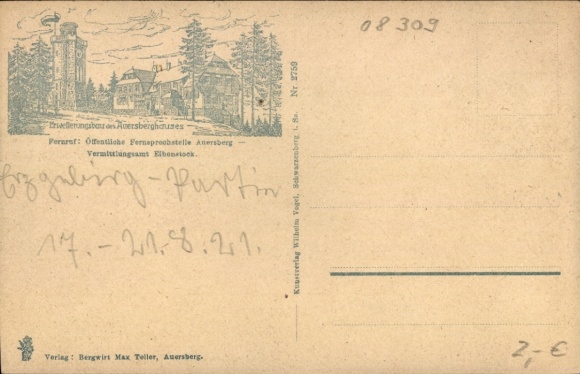 08309
Erweiterungsbau des Auersberghauses
Fernruf: Öffentliche Fernsprechstelle Auersberg —
Vermittlungsamt Eibenstock.
Erzgebirg-Partie
17.-21.8.21.
Kunstverlag Wilhelm Vogel, Schwarzenberg i. Sa. Nr 2759
Verlag: Bergwirt Max Teller, Auersberg.
2,-€